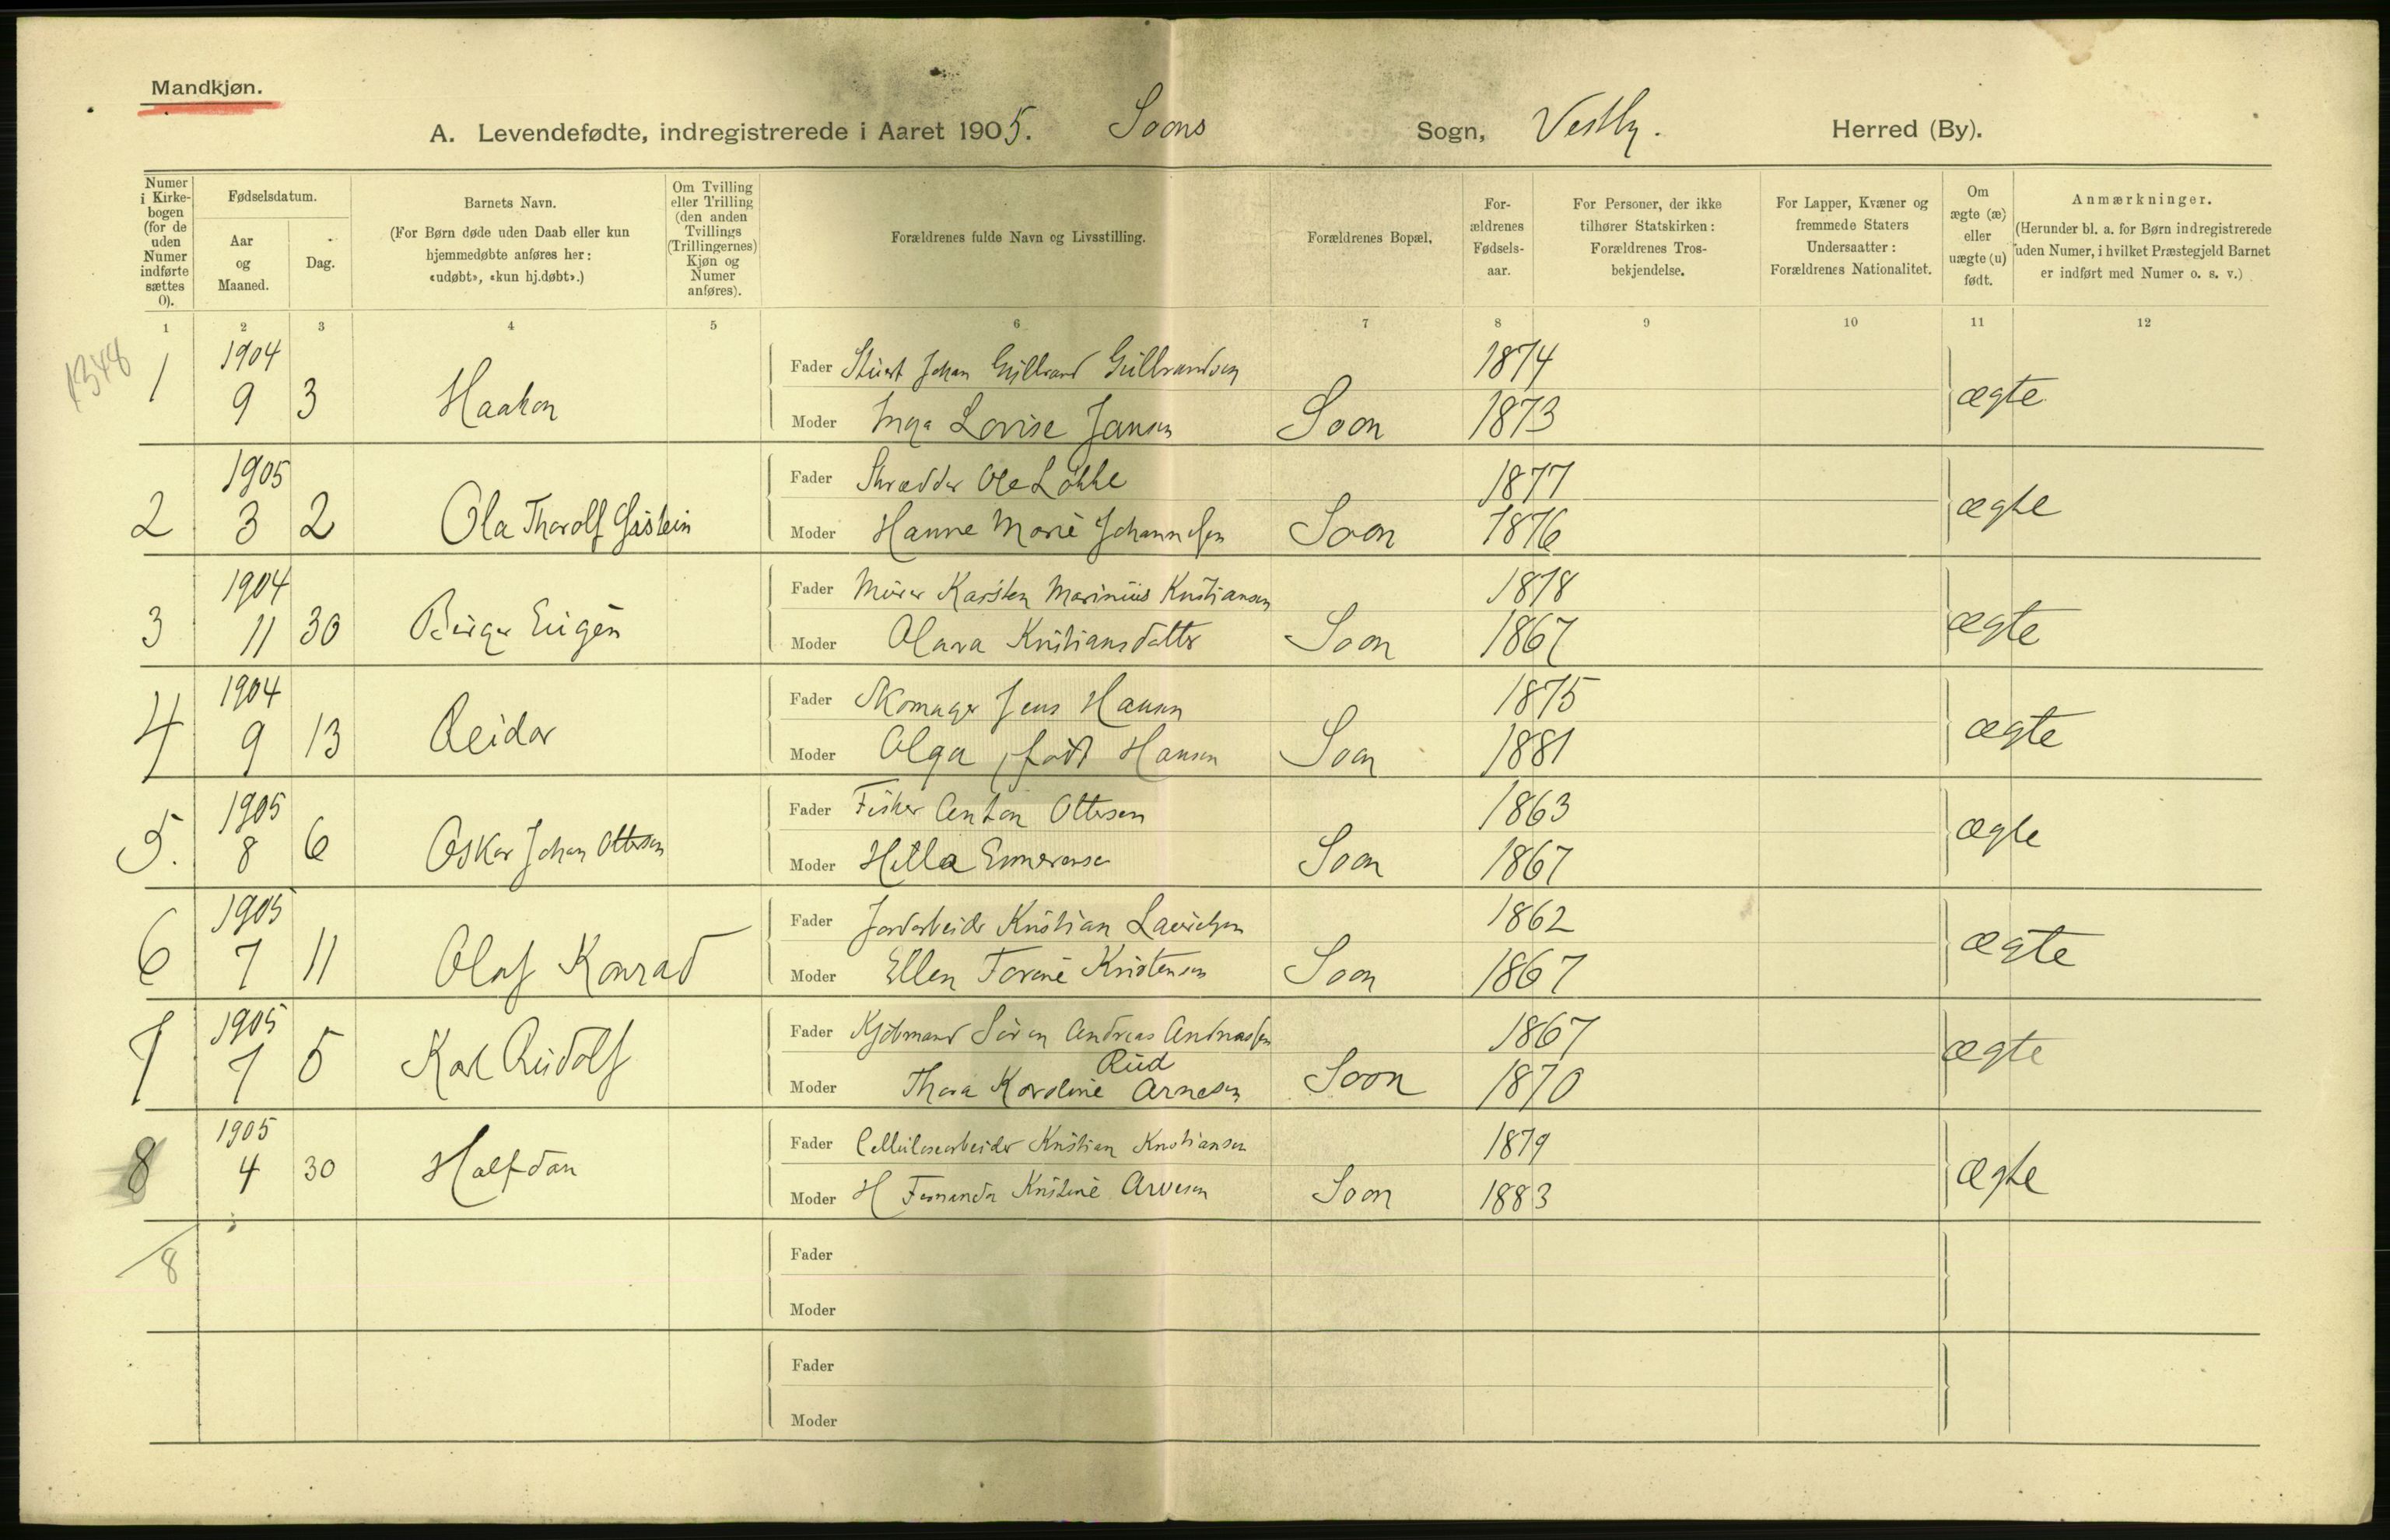 Mandkjøn.
A. Levendefødte, indregistrerede i Aaret 1905. Soons Sogn, Vestby. Herred (By).
Numer i Kirkebogen (for de uden Numer indførte sættes 0).
Fødselsdatum.
Aar og Maaned.
Dag.
Barnets Navn.
(For Børn døde uden Daab eller kun hjemmedøbte anføres her: «udøbt», «kun hj.døbt».)
Om Tvilling eller Trilling (den anden Tvillings (Trillingernes) Kjøn og Numer anføres).
Forældrenes fulde Navn og Livsstilling.
Forældrenes Bopæl.
Forældrenes Fødselsaar.
For Personer, der ikke tilhører Statskirken: Forældrenes Trosbekjendelse.
For Lapper, Kvæner og fremmede Staters Undersaatter: Forældrenes Nationalitet.
Om ægte (æ) eller uægte (u) født.
Anmærkninger.
(Herunder bl. a. for Børn indregistrerede uden Numer, i hvilket Præstegjeld Barnet er indført med Numer o. s. v.)
1 2 3 4 5 6 7 8 9 10 11 12
1348
1 1904 9 3 Haakon
Fader Johan Gulbrand Gulbrandsen 1874
Moder Inga Lovise Jansen Soon 1873 ægte
2 1905 3 2 Ola Thorolf
Fader Skrædder Ole Løkke 1877
Moder Hanne Marie Johannesen Soon 1876 ægte
3 1904 11 30 Birger Eugen
Fader Murer Karsten Marinius Kristiansen 1878
Moder Olava Kristiansdatter Soon 1867 ægte
4 1904 9 13 Reidar
Fader Skomager Jens Hansen 1875
Moder Olga født Hansen Soon 1881 ægte
5. 1905 8 6 Oskar Johan Ottersen
Fader Fisker Anton Ottersen 1863
Moder Soon 1867 ægte
6 1905 7 11 Olaf Konrad
Fader Jordarbeider Kristian Lauritsen 1862
Moder Ellen Torine Kristensen Soon 1867 ægte
7 1905 7 5 Karl Rudolf
Fader Kjøbmand Søren Andreas Andreassen Rud 1867
Moder Thora Karoline Arnesen Soon 1870 ægte
8 1905 4 30 Halfdan
Fader Cellulosearbeider Kristian Kristiansen 1879
Moder H Fernanda Kristine Arvesen Soon 1883 ægte
8
Fader
Moder
Fader
Moder